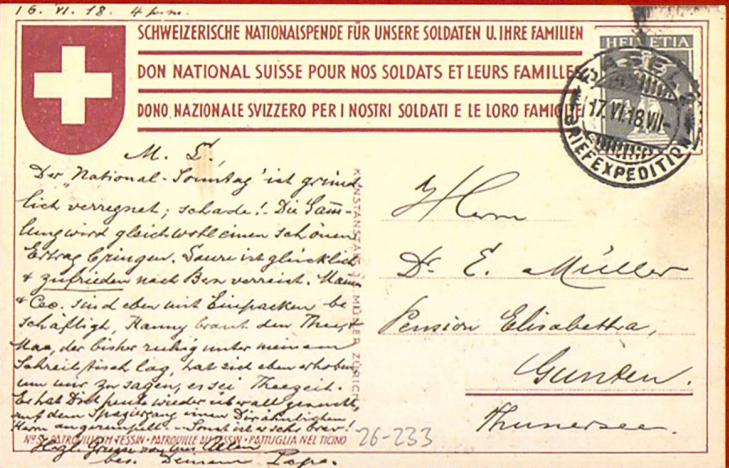 16. VI. 18. 4 p.m.
SCHWEIZERISCHE NATIONALSPENDE FÜR UNSERE SOLDATEN U. IHRE FAMILIEN
DON NATIONAL SUISSE POUR NOS SOLDATS ET LEURS FAMILLE
DONO NAZIONALE SVIZZERO PER I NOSTRI SOLDATI E LE LORO FAMIGLIE
HELVETIA
BASEL
17.VI.18.VII-
BRIEFEXPEDITION
M. L.,
Der "National-Sonntag" ist gründ-
lich verregnet; schade! - Die Samm-
lung wird gleichwohl einen schönen
Ertrag bringen. ist glücklich
& zufrieden nach Bern verreist. Mama
& sind eben mit Einpacken be-
schäftigt, Hanny braut den Thee,
der bisher ruhig unter meinem
Schreibtisch lag, hat sich eben erhoben
um mir zu sagen, es sei Theezeit.
Er hat Dich heute wieder überall gesucht,
auf dem Spaziergang einen Dir ähnlichen
Herrn angerempelt - Sonst ist er sehr brav!
Hzgl. Grüsse von uns Allen
bes. Deinem Papa.
KUNSTANSTALT J. C. MÜLLER, ZÜRICH
Herrn
Dr. E. Müller
Pension Elisabetha,
Gunten.
Thunersee.
PATROUILLE IM TESSIN • PATROUILLE AU TESSIN • PATTUGLIA NEL TICINO
26-233